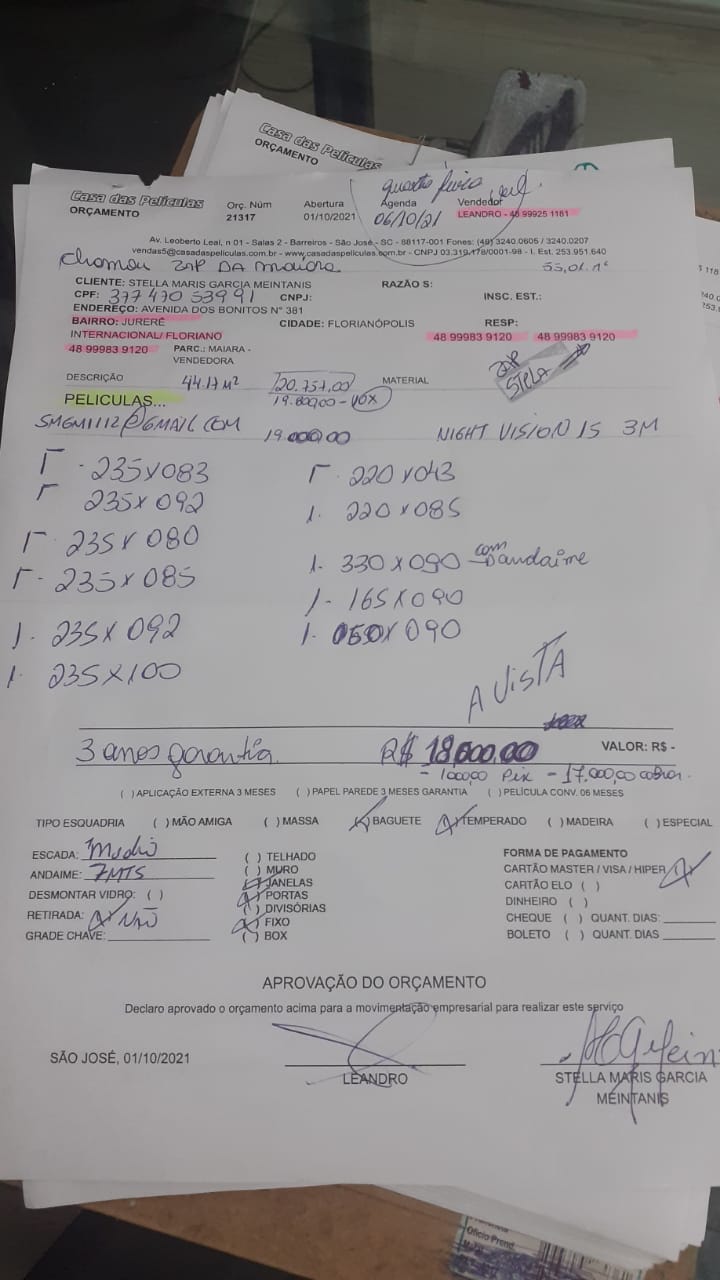 Casa das Películas
ORÇAMENTO
Casa das Películas
ORÇAMENTO
Orç. Núm
21317
Abertura
01/10/2021
quarta feira
Agenda
06/10/21
Vendedor
LEANDRO - 48 99925 1161
Av. Leoberto Leal, n 01 - Salas 2 - Barreiros - São José - SC - 88117-001 Fones: (48) 3240.0605 / 3240.0207
vendas5@casadaspeliculas.com.br - www.casadaspeliculas.com.br - CNPJ 03.319.178/0001-98 - I. Est. 253.951.640
Chamou ZAP DA maiara
CLIENTE: STELLA MARIS GARCIA MEINTANIS
RAZÃO S:
CPF: 377 470 539 91 CNPJ:
INSC. EST.:
ENDEREÇO: AVENIDA DOS BONITOS N° 381
BAIRRO: JURERÊ
CIDADE: FLORIANÓPOLIS
RESP:
INTERNACIONAL/ FLORIANO
48 99983 9120 48 99983 9120
48 99983 9120 PARC.: MAIARA -
VENDEDORA
ZAP
STELA
DESCRIÇÃO 44.17 M² 20.757,00 MATERIAL
PELICULAS...
19.800,00 - 10X
SMGM1112@GMAIL.COM
19.000,00 NIGHT VISION 15 3M
1 - 235X083 1 - 220X043
1 235X092 1. 220X085
1 - 235X080
1 - 235X085 1. 330X090 - com andaime
1 - 165X090
1. 235X092 1. 050X090
1. 235X100
A VISTA
3 anos garantia R$ 18,000.00 VALOR: R$ -
- 1000,00 Pix - 17.000,00 cobrar
( ) APLICAÇÃO EXTERNA 3 MESES ( ) PAPEL PAREDE 3 MESES GARANTIA ( ) PELÍCULA CONV. 06 MESES
TIPO ESQUADRIA ( ) MÃO AMIGA ( ) MASSA (X) BAGUETE (X) TEMPERADO ( ) MADEIRA ( ) ESPECIAL
ESCADA: Medio
ANDAIME: 7MTS
DESMONTAR VIDRO: ( )
RETIRADA: (X) NÃO
GRADE CHAVE:
( ) TELHADO
( ) MURO
(X) JANELAS
(X) PORTAS
( ) DIVISÓRIAS
(X) FIXO
( ) BOX
FORMA DE PAGAMENTO
CARTÃO MASTER / VISA / HIPER (X)
CARTÃO ELO ( )
DINHEIRO ( )
CHEQUE ( ) QUANT. DIAS:
BOLETO ( ) QUANT. DIAS
APROVAÇÃO DO ORÇAMENTO
Declaro aprovado o orçamento acima para a movimentação empresarial para realizar este serviço
SÃO JOSÉ, 01/10/2021
LEANDRO
STELLA MARIS GARCIA
MEINTANIS